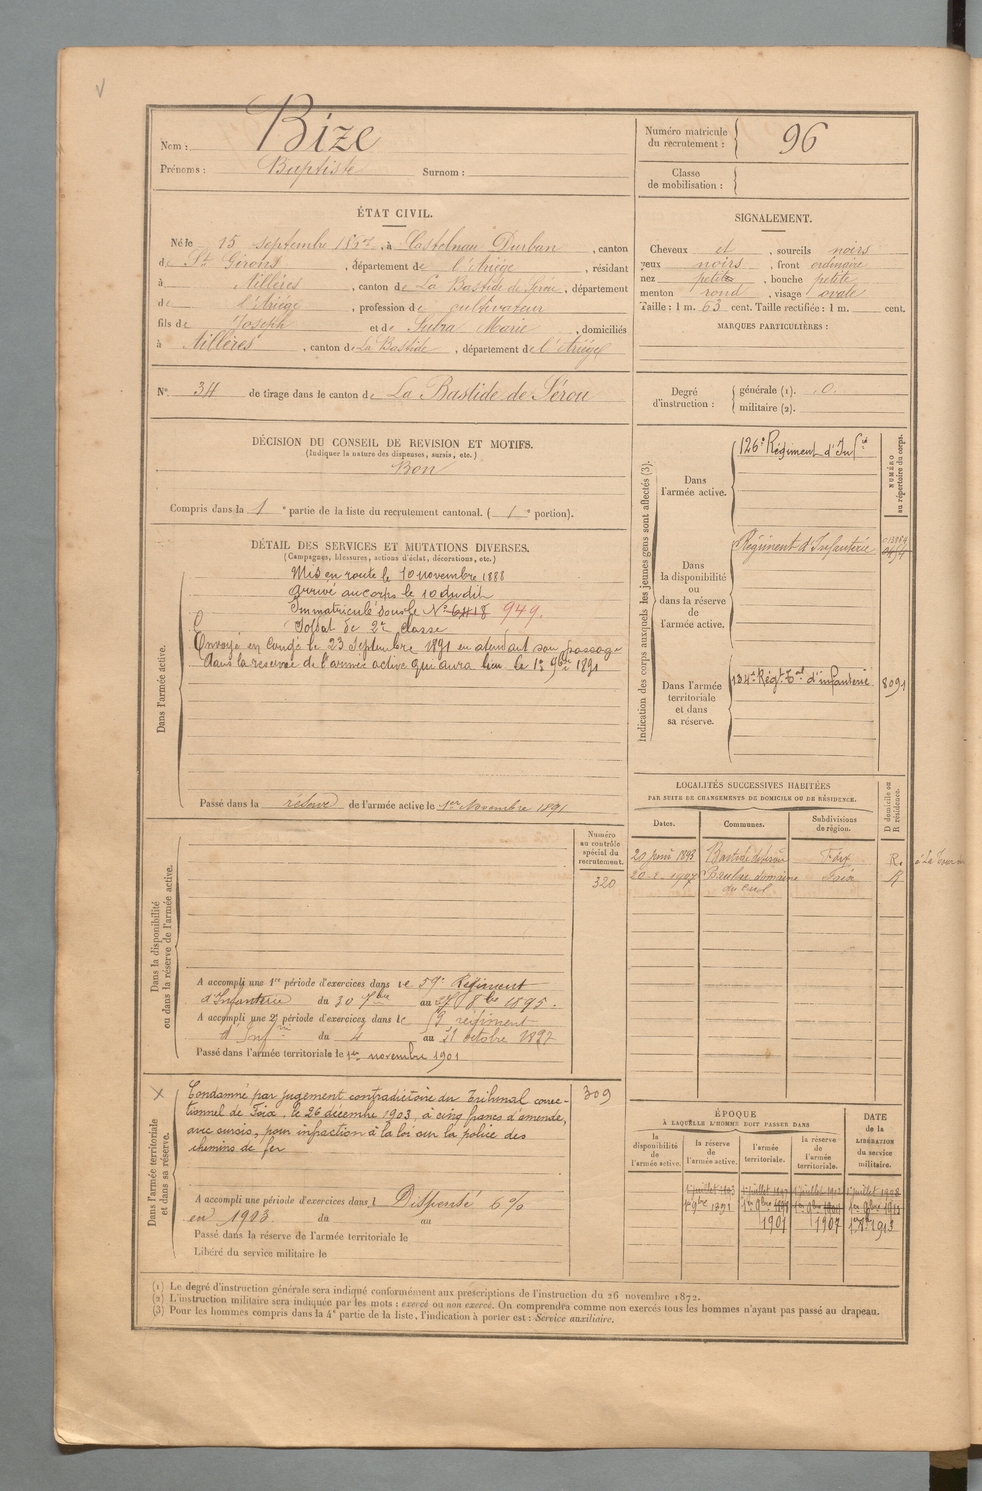 Nom : Bize
Prénoms : Baptiste Surnom :
Numéro matricule du recrutement : 96
Classe de mobilisation :
ÉTAT CIVIL.
Né le 15 septembre, à Castelnau Durban, canton
de St Girons, département de l'Ariège, résidant
à Aillères, canton de La Bastide de Sérou, département
de l'Ariége, profession de cultivateur
fils de Joseph et de Subra Marie, domiciliés
à Aillères, canton de La Bastide, département de l'Ariége
SIGNALEMENT.
Cheveux et, sourcils noirs
yeux noirs, front ordinaire
nez petit, bouche petite
menton rond, visage ovale
Taille : 1 m. 63 cent. Taille rectifiée : 1 m. cent.
MARQUES PARTICULIÈRES :
N° 34 de tirage dans le canton de La Bastide de Sérou
Degré d'instruction : générale (1). 0.
militaire (2).
DÉCISION DU CONSEIL DE REVISION ET MOTIFS.
(Indiquer la nature des dispenses, sursis, etc.)
Bon
Compris dans la 1e partie de la liste du recrutement cantonal. (1e portion).
DÉTAIL DES SERVICES ET MUTATIONS DIVERSES.
(Campagnes, blessures, actions d'éclat, décorations, etc.)
Dans l'armée active.
Mis en route le 10 novembre 1888
arrivé au corps le 10 du dit
Immatriculé sous le N° 6418 949.
Soldat de 2e classe
Envoyé en Congé le 23 Septembre 1891 en attendant son passage
dans la réserve de l'armée active qui aura lieu le 1er 9bre 1891
Passé dans la réserve de l'armée active le 1er Novembre 1891
Indication des corps auxquels les jeunes gens sont affectés (3).
NUMÉRO au répertoire du corps.
Dans l'armée active.
126e Régiment d'Inf
Dans la disponibilité ou dans la réserve de l'armée active.
Régiment d'Infanterie
Dans l'armée territoriale et dans sa réserve.
134e Régt Tal d'infanterie 8091
LOCALITÉS SUCCESSIVES HABITÉES
PAR SUITE DE CHANGEMENTS DE DOMICILE OU DE RÉSIDENCE.
Dates. Communes. Subdivisions de région. D domicile ou R résidence.
20 juin 1893 Bastide de Sérou Foix R.
20 1907 domaine Foix R
Dans la disponibilité ou dans la réserve de l'armée active.
Numéro au contrôle spécial du recrutement.
320
A accompli une 1re période d'exercices dans le 59e Régiment
d'Infanterie du 30 7bre au 8bre 1895.
A accompli une 2e période d'exercices dans le 59 regiment
d'Inf du 4 au 31 octobre 1897
Passé dans l'armée territoriale le 1er novembre 1901
Dans l'armée territoriale et dans sa réserve.
309
Condamné par jugement contradictoire du Tribunal correc-
tionnel de Foix, le 26 décembre 1903, à cinq francs d'amende,
avec sursis, pour infraction à la loi sur la police des
chemins de fer
A accompli une période d'exercices dans l Dispensé 6%
en 1903. du au
Passé dans la réserve de l'armée territoriale le
Libéré du service militaire le
ÉPOQUE
À LAQUELLE L'HOMME DOIT PASSER DANS
la disponibilité de l'armée active. la réserve de l'armée active. l'armée territoriale. la réserve de l'armée territoriale. DATE de la LIBÉRATION du service militaire.
1er 9bre 1891
1901 1907 1913
(1) Le degré d'instruction générale sera indiqué conformément aux prescriptions de l'instruction du 26 novembre 1872.
(2) L'instruction militaire sera indiquée par les mots : exercé ou non exercé. On comprendra comme non exercés tous les hommes n'ayant pas passé au drapeau.
(3) Pour les hommes compris dans la 4e partie de la liste, l'indication à porter est : Service auxiliaire.